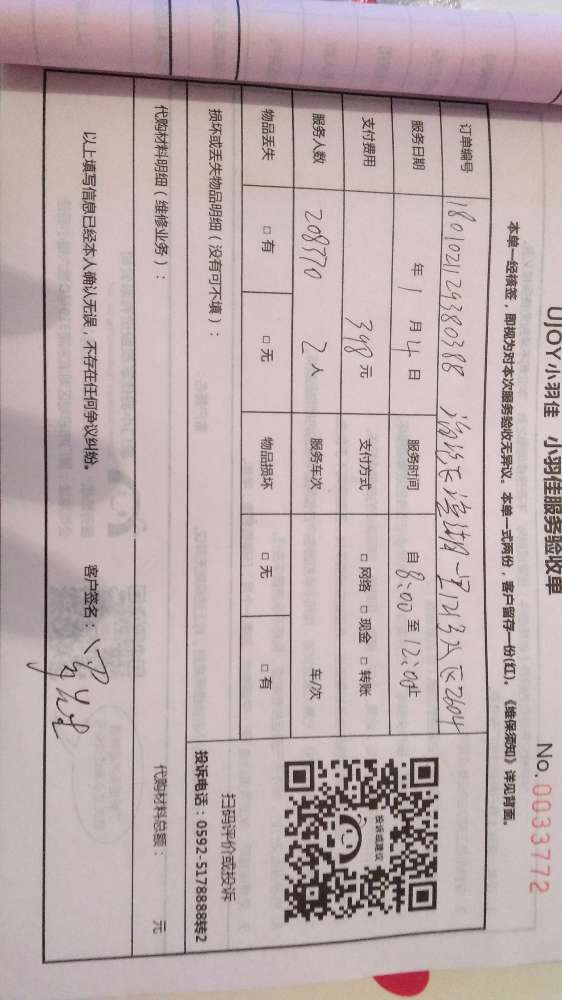 UJOY小羽佳 小羽佳服务验收单
No. 0033772
本单一经核签，即视为对本次服务验收无异议。本单一式两份，客户留存一份(红)。《维保须知》详见背面。
订单编号 1801021129380388
服务日期 年 1 月 4 日 服务时间 自 8:00 至 12:00止
支付费用 398 元 支付方式 □ 网络 □ 现金 □ 转账
服务人数 208370 2 人 服务车次 车/次
物品丢失 □ 有 □ 无 物品损坏 □ 无 □ 有
损坏或丢失物品明细（没有可不填）：
代购材料明细（维修业务）：
代购材料总额： 元
以上填写信息已经本人确认无误，不存在任何争议纠纷。
客户签名：
投诉或建议
扫码评价或投诉
投诉电话：0592-5178888转2